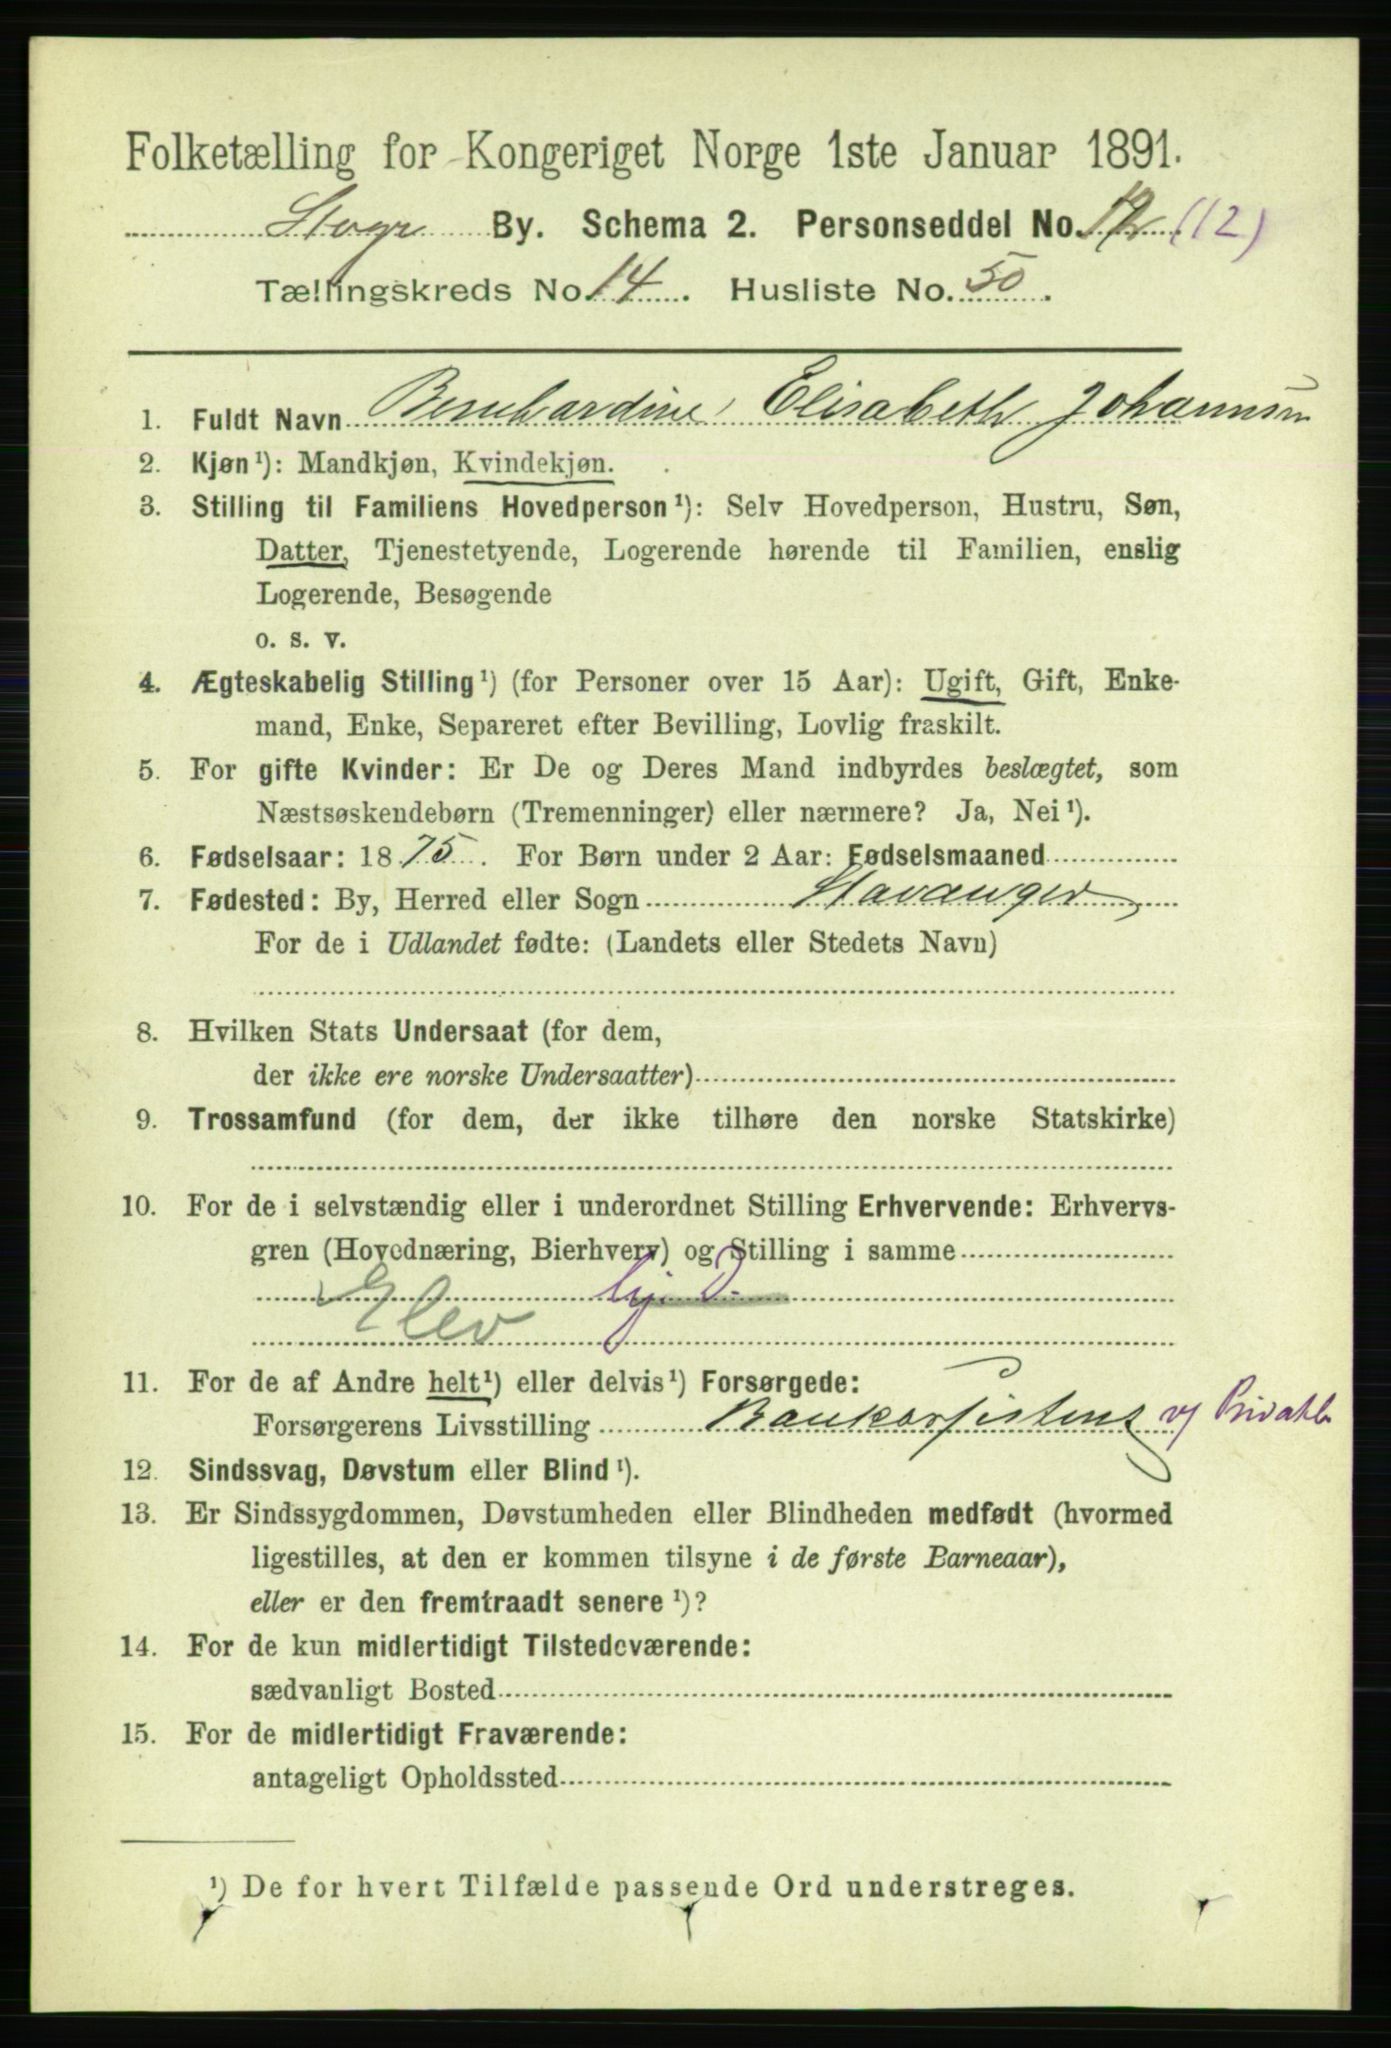 Folketælling for Kongeriget Norge 1ste Januar 1891.
Stvgr By. Schema 2. Personseddel No. 12 (12)
Tællingskreds No. 14. Husliste No. 50.
1. Fuldt Navn Bernhardine Elisabeth Johannsen
2. Kjøn ¹): Mandkjøn, Kvindekjøn.
3. Stilling til Familiens Hovedperson ¹): Selv Hovedperson, Hustru, Søn,
Datter, Tjenestetyende, Logerende hørende til Familien, enslig
Logerende, Besøgende
o. s. v.
4. Ægteskabelig Stilling ¹) (for Personer over 15 Aar): Ugift, Gift, Enke-
mand, Enke, Separeret efter Bevilling, Lovlig fraskilt.
5. For gifte Kvinder: Er De og Deres Mand indbyrdes beslægtet, som
Næstsøskendebørn (Tremenninger) eller nærmere? Ja, Nei ¹).
6. Fødselsaar: 1875. For Børn under 2 Aar: Fødselsmaaned
7. Fødested: By, Herred eller Sogn Stavanger
For de i Udlandet fødte: (Landets eller Stedets Navn)
8. Hvilken Stats Undersaat (for dem,
der ikke ere norske Undersaatter)
9. Trossamfund (for dem, der ikke tilhøre den norske Statskirke)
10. For de i selvstændig eller i underordnet Stilling Erhvervende: Erhvervs-
gren (Hovednæring, Bierhverv) og Stilling i samme
Elev
11. For de af Andre helt ¹) eller delvis ¹) Forsørgede:
Forsørgerens Livsstilling Bankassistent v/ Privatb
12. Sindssvag, Døvstum eller Blind ¹).
13. Er Sindssygdommen, Døvstumheden eller Blindheden medfødt (hvormed
ligestilles, at den er kommen tilsyne i de første Barneaar),
eller er den fremtraadt senere ¹)?
14. For de kun midlertidigt Tilstedeværende:
sædvanligt Bosted
15. For de midlertidigt Fraværende:
antageligt Opholdssted
¹) De for hvert Tilfælde passende Ord understreges.